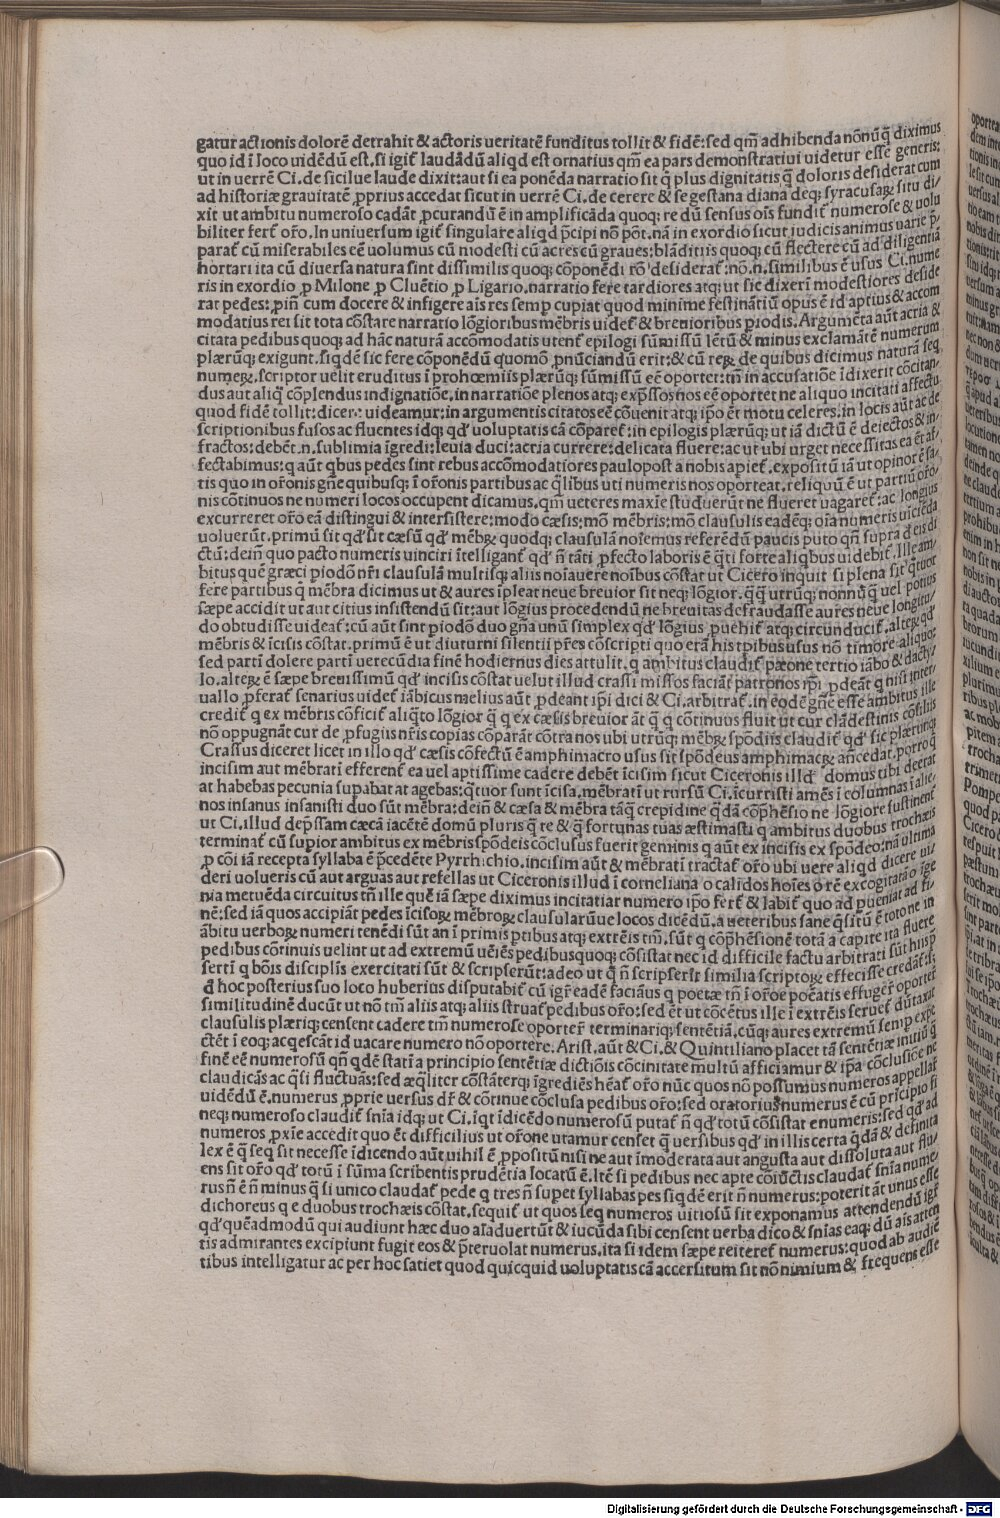 gatur actionis dolorē detrahit & actoris ueritatē funditus tollit & fidē: sed qm̄ adhibenda nōnūq̄ diximus
quo id ī loco uidēdū est. si igit̄ laudādū aliqd est ornatius qm̄ ea pars demonstratiui uidetur esse generis:
ut in uerrē Ci. de siciliæ laude dixit: aut si ea ponēda narratio sit q̄ plus dignitatis q̄ doloris desiderat cum
ad historiæ grauitatē ꝓprius accedat sicut in uerrē Ci. de cerere & segestana diana deq; syracusaꝝ situ di/
xit ut ambitu numeroso cadāt ꝓcurandū ē in amplificāda quoq; re dū sensus oīs fundit̄ numerose & uolu
biliter fert̄ oro. In uniuersum igit̄ singulare aliqd p̄cipi nō pōt. nā in exordio sicut iudicis animus uarie p̄/
parat̄ cū miserabiles eē uolumus cū modesti cū acres cū graues: blāditiis quoq; cū flectere cū ad diligentiā
hortari ita cū diuersa natura sint dissimilis quoq; cōponēdi rō desiderat̄: nō. n. similibus ē usus Ci. nume
ris in exordio ꝓ Milone ꝓ Cluētio ꝓ Ligario. narratio fere tardiores atq; ut sic dixerī modestiores deside
rat pedes: ꝓin̄ cum docere & infigere ais res semp cupiat quod minime festinātiū opus ē id aptius & accom
modatius rei sit tota cōstare narratio lōgioribus mēbris uidet̄ & breuioribus piodis. Argumēta aūt acria &
citata pedibus quoq; ad hāc naturā accōmodatis utent̄ epilogi sūmissū lētū & minus exclamātē numerum
plærūq; exigunt. siqdē sic fere cōponēdū quomō ꝓnūciandū erit: & cū reꝝ de quibus dicimus naturā seq
numeꝝ. scriptor uelit eruditus ī prohœmiis plærūq; sūmissū eē oportet: tn̄ in accusatiōe īdixerit cōcitan/
dus aut aliq̄ cōplendus indignatiōe, in narratiōe plenos atq; exp̄ssos nos eē oportet ne aliquo incitati affectu
quod fidē tollit: dicere uideamur: in argumentis citatos eē cōuenit atq; ip̄o ēt motu celeres. in locis aūt ac de
scriptionibus fusos ac fluentes idq; qd' uoluptatis cā cōparet̄: in epilogis plærūq; ut iā dictū ē deiectos & in/
fractos: debēt. n. sublimia īgredi: leuia duci: acria currere: delicata fluere: ac ut ubi urget necessitas ea ēt af/
fectabimus: q aūt qbus pedes sint rebus accōmodatiores paulopost a nobis apiet̄. expositū iā ut opinor ē sa/
tis quo in orōnis gn̄e quibusq; ī orōnis partibus ac q̄libus uti numeris nos oporteat. reliquū ē ut partiū oro/
nis cōtinuos ne numeri locos occupent dicamus, qm̄ ueteres maxīe studuerūt ne flueret uagaret̄: ac longius
excurreret oro eā distingui & intersistere: modo cæsis: mō mēbris: mō clausulis eadēq; oīa numeris uiciēda
uoluerūt. primū sit qd' sit cæsū qd' mēbꝝ quodq; clausulā noīemus referēdū paucis puto qn̄ supra deis di
ctū: dein̄ quo pacto numeris uinciri ītelligant̄ qd' n̄ tāti ꝓfecto laboris ē q̄ti forte aliqbus uidebit̄. Ille am/
bitus quē græci piodō nr̄i clausulā multisq; aliis noīauere noībus cōstat ut Cicero inquit si plena sit q̄tuor
fere partibus q̄ mēbra dicimus ut & aures īpleat neue breuior sit neq; lōgior. q̄q̄ utrūq; nonnūq̄ uel potius
sæpe accidit ut aut citius insistendū sit: aut lōgius procedendū ne breuitas defraudasse aures neue longitu/
do obtudisse uideat̄: cū aūt sint piodō duo gn̄a unū simplex qd' lōgius ꝓuehit̄ atq; circunducit̄. alteꝝ qd'
mēbris & īcisis cōstat. primū ē ut diuturni silentii pr̄es cōscripti quo erā his tp̄ibus usus nō timore aliquo:
sed partī dolere partī uerecūdia finē hodiernus dies attulit. q ambitus claudit̄ pæone tertio iābo & dachy/
lo. alteꝝ ē sæpe breuissimū qd' incisis cōstat uelut illud crassi missos faciāt patronos ip̄i ꝓdeāt q nisi inter/
uallo ꝓferat̄ senarius uidet̄ iābicus melius aūt ꝓdeant ip̄i dici & Ci. arbitrat̄. in eodē gn̄e esse ambitus ille
credit̄ q ex mēbris cōficit̄ aliq̄to lōgior q̄ q ex cæsis breuior āt q̄ q cōtinuos fluit ut cur clādestinis cōsiliis
nō oppugnāt cur de ꝓfugiis nr̄is copias cōparāt cōtra nos ubi utrūq; mēbꝝ spōdiis claudit̄ qd' sic plærūq;
Crassus diceret licet in illo qd' cæsis cōfectū ē amphimacro usus sit spōdeus amphimaceꝝ an̄cedat. porro q̄
incisim aut mēbrati efferent̄ ea uel aptissime cadere debēt īcisim sicut Ciceronis illd' domus tibi deerat
at habebas pecunia supabat at agebas: q̄tuor sunt īcisa. mēbrati ut rursū Ci. īcurristi amēs ī columnas ī alie/
nos insanus insanisti duo sūt mēbra: dein̄ & cæsa & mēbra tāq̄ crepidine q̄dā cōp̄hēsio ne lōgiore sustinent̄
ut Ci. illud dep̄ssam cæcā iacētē domū pluris q̄ te & q̄ fortunas tuas æstimasti q ambitus duobus trochæis
terminat̄ cū supior ambitus ex mēbris spōdeis cōclusus fuerit geminis q aūt ex incisis ex spōdeo: nā ultima
ꝓ cōi iā recepta syllaba ē p̄cedēte Pyrrhichio. incisim aūt & mēbrati tractat̄ oro ubi uere aliqd dicere ui/
deri uolueris cū aut arguas aut refellas ut Ciceronis illud ī corneliana o calidos hoīes o rē excogitatā o īge
nia metuēda circuitus tn̄ ille quē iā sæpe diximus incitatiar numero ip̄o fert̄ & labit̄ quo ad pueniat ad fi/
nē: sed iā quos accipiāt pedes īcisoꝝ mēbroꝝ clausularūue locos dicēdū. a ueteribus sane q̄sitū ē toto ne in
ābitu uerboꝝ numeri tenēdi sūt an ī primis ptibus atq; extrēis tm̄. sūt q cōp̄hēsionē totā a capite ita fluere
pedibus cōtinuis uelint ut ad extremū ueīēs pedibusquoq; cōsistat nec id difficile factu arbitrati sūt hisp
sertī q bōis discipl̄is exercitati sūt & scripserūt: adeo ut q̄ n̄ scripserīt similia scriptoꝝ effecisse credāt̄: s;
d' hoc posterius suo loco huberius disputabit̄ cū igr̄ eadē faciāus q poetæ tn̄ ī orōe poēatis effuger oportet
similitudinē ducūt ut nō tm̄ aliis atq; aliis struat̄ pedibus oro: sed ēt ut cōcētus ille ī extrēis seruet̄ dū taxat
clausulis plæriq; censent cadere tm̄ numerose oportet̄ terminariq; sentētiā. cūq; aures extremū semp expe
ctēt ī eoq; acqescāt id uacare numero nō oportere. Arist. aūt & Ci. & Quintiliano placet tā sentētiæ initiū q̄
finē eē numerosū qn̄ qdē statī a principio sentētiæ dictiōis cōcinitate multū afficiamur & ip̄a cōclusiōe ne
claudicās ac q̄si fluctuās: sed æq̄liter cōstāterq; īgrediēs hēat̄ oro nūc quos nō possumus numeros appellat̄
uidēdū ē. numerus ꝓprie uersus dr̄ & cōtinue cōclusa pedibus oro: sed oratorius numerus ē cū prīcipio si
neq; numeroso claudit̄ sn̄ia idq; ut Ci. iqt īdicēdo numerosū putat̄ n̄ qd' totū cōsistat enumeris: sed qd' ad
numeros ꝓxīe accedit quo ēt difficilius ut orōne utamur censet q̄ uersibus qd' in illis certa q̄dā & definita
lex ē q̄ seq̄ sit necesse īdicendo aūt nihil ē ꝓpositū nisi ne aut īmoderata aut angusta aut dissoluta aut flu/
ens sit oro qd' totū ī sūma scribentis prudētia locatū ē. Itē si pedibus nec apte cōiūctis claudat̄ sn̄ia nume/
rusn̄ ē n̄ minus q̄ si unico claudat̄ pede q tres n̄ supet syllabas pes siqdē erit n̄ numerus: poterit āt unus esse
dichoreus q e duobus trochæis cōstat. sequit̄ ut quos seq̄ numeros uitiosū sit exponamus attendendū igr̄
qd' quēadmodū qui audiunt hæc duo aīaduertūt & iucūda sibi censent uerba dico & sn̄ias eaq; dū ais atten
tis admirantes excipiunt fugit eos & p̄teruolat numerus. ita si idem sæpe reiteret̄ numerus: quod ab audiē
tibus intelligatur ac per hoc satiet quod quicquid uoluptatis cā accersitum sit nō nimium & frequens esse
Digitalisierung gefördert durch die Deutsche Forschungsgemeinschaft - DFG